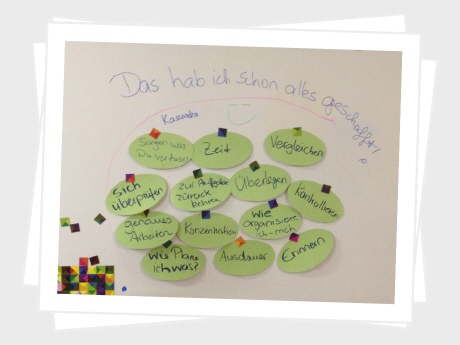 Das hab ich schon alles geschafft!
Kassandra
Sagen was
Du
Zeit
Vergleichen
Sich
überprüfen
zur Aufgabe
zurück
kehren
Überlegen
Kontrollieren
genaues
Arbeiten
Konzentration
Wie
Organisiere
ich mich
Wie Plane
ich was?
Ausdauer
Erinnern